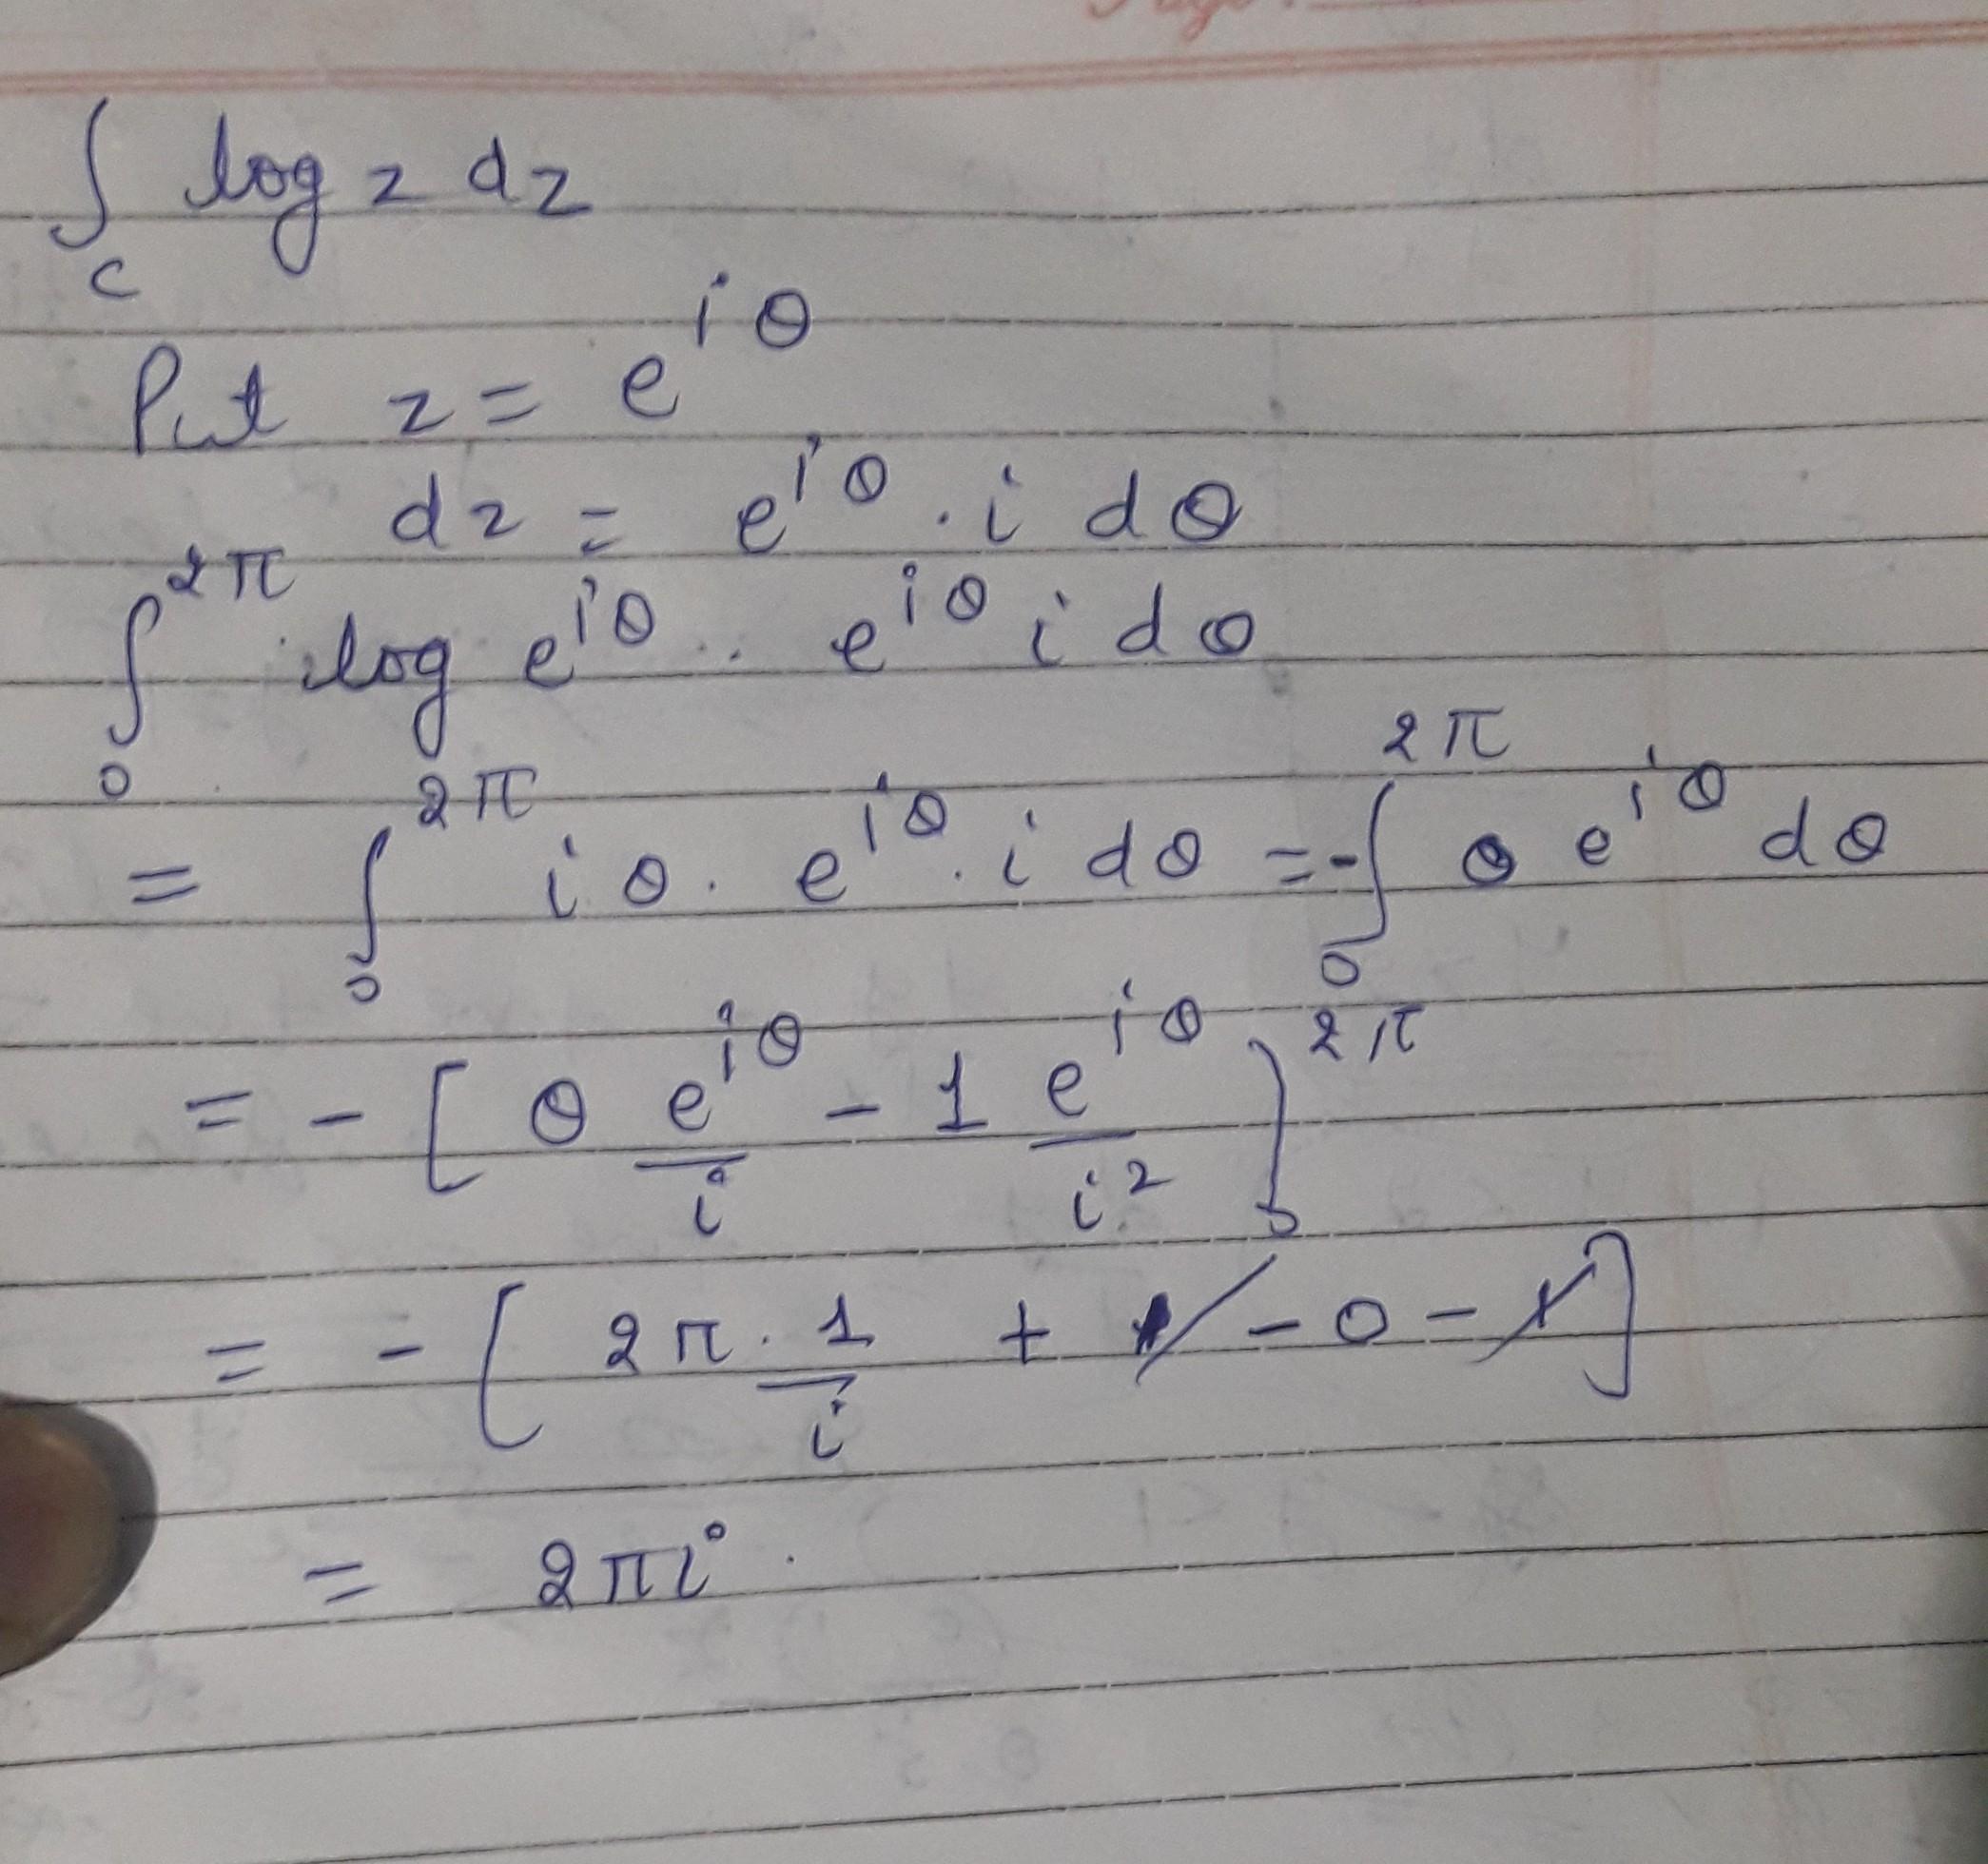 Page:
∫_C log z dz
Put z = e^{iθ}
dz = e^{iθ} . i dθ
∫_0^{2π} log e^{iθ} . . e^{iθ} i dθ
= ∫_0^{2π} i θ . e^{iθ} . i dθ = - ∫_0^{2π} θ e^{iθ} dθ
= - [ θ e^{iθ}/i - 1 e^{iθ}/i^2 ]_0^{2π}
= - [ 2π . 1/i + 1 - 0 - 1 ]
= 2πi .